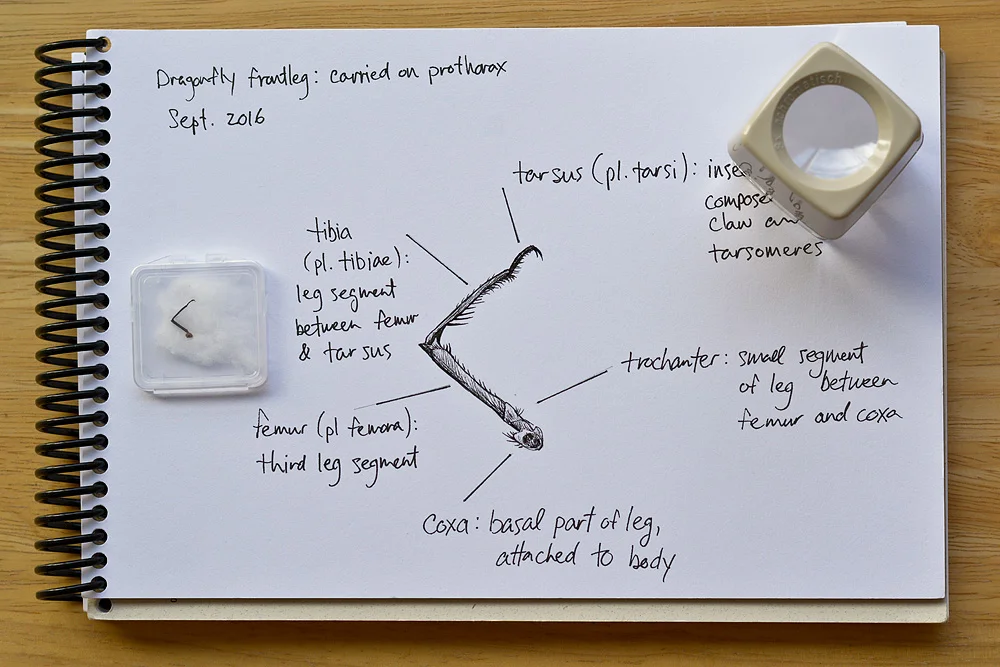 Dragonfly frontleg: carried on prothorax
Sept. 2016
tarsus (pl. tarsi):
compose
claw an
tarsomeres
tibia
(pl. tibiae):
leg segment
between femur
& tarsus
trochanter: small segment
of leg between
femur and coxa
femur (pl femora):
third leg segment
coxa: basal part of leg,
attached to body